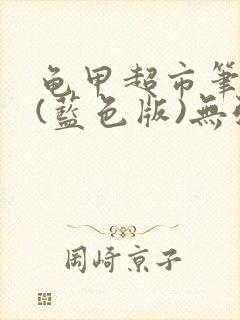 龟甲超市筆
(藍色版)無
岡崎京子